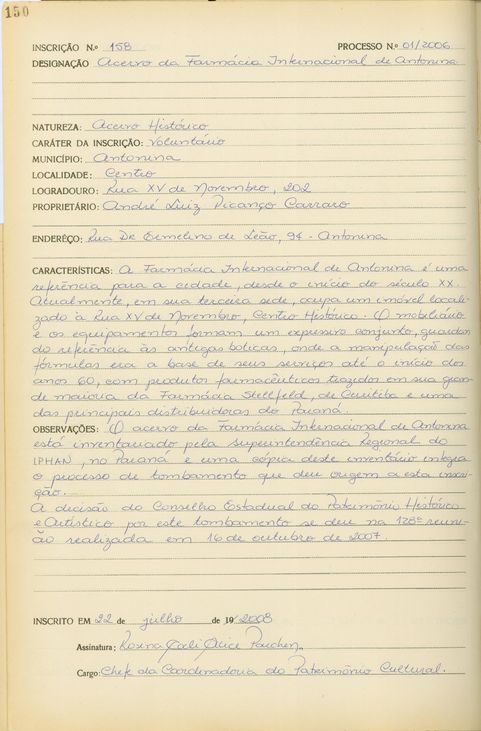 150
INSCRIÇÃO N.º 158 PROCESSO N.º 01/2006
DESIGNAÇÃO Acervo da Farmácia Internacional de Antonina
NATUREZA: Acervo Histórico
CARÁTER DA INSCRIÇÃO: Voluntário
MUNICÍPIO: Antonina
LOCALIDADE: Centro
LOGRADOURO: Rua XV de Novembro, 202
PROPRIETÁRIO: André Luiz Picanço Carraro
ENDERÊÇO: Rua Dr Ermelino de Leão, 94 - Antonina
CARACTERÍSTICAS: A Farmácia Internacional de Antonina é uma
referência para a cidade, desde o início do século XX.
Atualmente, em sua terceira sede, ocupa um imóvel locali-
zado à Rua XV de Novembro, Centro Histórico. O mobiliário
e os equipamentos formam um expressivo conjunto, guardan
do referência às antigas boticas, onde a manipulação das
fórmulas era a base de seus serviços até o início dos
anos 60, com produtos farmacêuticos trazidos em sua gran
de maioria da Farmácia Stellfeld, de Curitiba e uma
das principais distribuidoras do Paraná.
OBSERVAÇÕES: O acervo da Farmácia Internacional de Antonina
está inventariado pela Superintendência Regional do
IPHAN, no Paraná e uma cópia deste inventário integra
o processo de tombamento que deu origem a esta inscri-
ção.
A decisão do Conselho Estadual do Patrimônio Histórico
e Artístico por este tombamento se deu na 128ª reuni-
ão realizada em 16 de outubro de 2007.
INSCRITO EM 22 de julho de 19 2008
Assinatura: Rosina
Cargo: Chefe da Coordenadoria do Patrimônio Cultural.